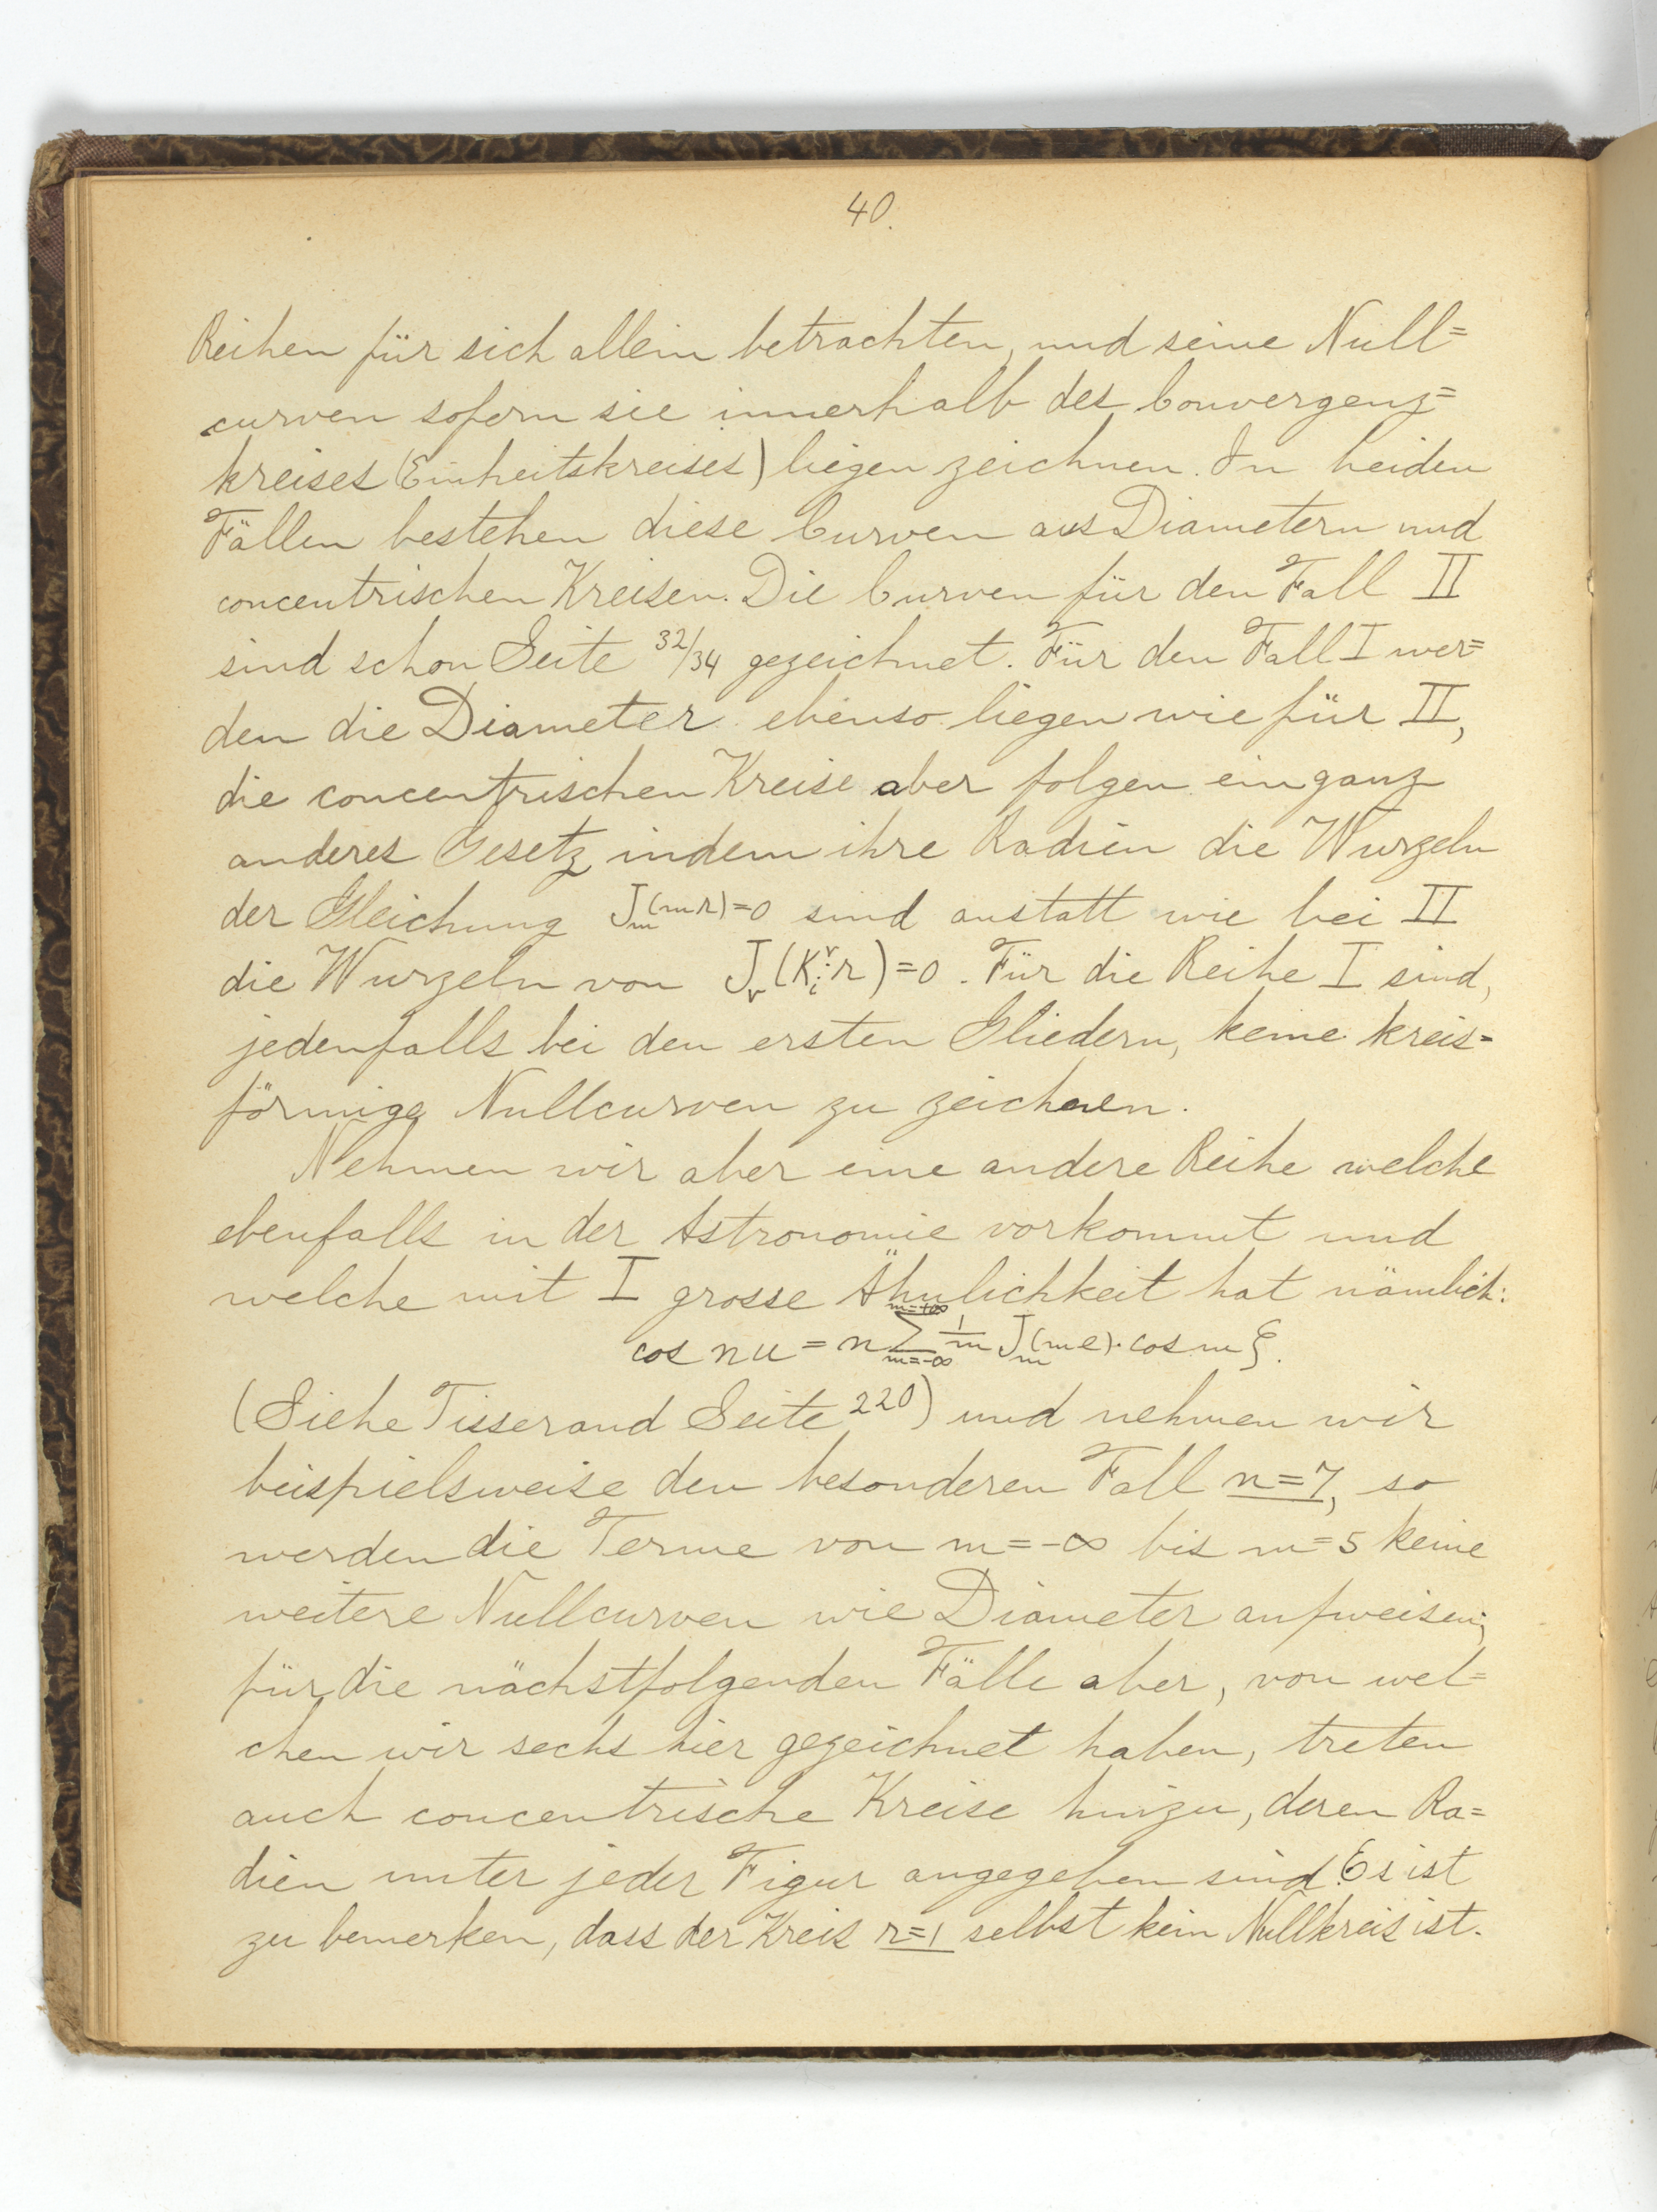 40.
Reihen für sich allein betrachten, und seine Null=
curven sofern sie innerhalb des Convergenz=
kreises (Einheitskreises) liegen zeichnen. In beiden
Fällen bestehen diese Curven aus Diametern und
concentrischen Kreisen. Die Curven für den Fall II
sind schon Seite 32/34 gezeichnet. Für den Fall I wer=
den die Diameter ebenso liegen wie für II,
die concentrischen Kreise aber folgen ein ganz
anderes Gesetz, indem ihre Radien die Wurzeln
der Gleichung J_m(mr)=0 sind anstatt wie bei II
die Wurzeln von J_ν(K_i^ν·r)=0. Für die Reihe I sind,
jedenfalls bei den ersten Gliedern, keine kreis=
förmige Nullcurven zu zeichnen.
Nehmen wir aber eine andere Reihe welche
ebenfalls in der Astronomie vorkommt und
welche mit I grosse Ähnlichkeit hat nämlich:
cos nu = n Σ_{m=-∞}^{m=+∞} 1/m J_m(me)·cos mξ.
(Siehe Tisserand Seite 220) und nehmen wir
beispielsweise den besonderen Fall n=7, so
werden die Terme von m=-∞ bis m=5 keine
weitere Nullcurven wie Diameter aufweisen;
für die nächstfolgenden Fälle aber, von wel=
chen wir sechs hier gezeichnet haben, treten
auch concentrische Kreise hinzu, deren Ra=
dien unter jeder Figur angegeben sind. Es ist
zu bemerken, dass der Kreis r=1 selbst kein Nullkreis ist.